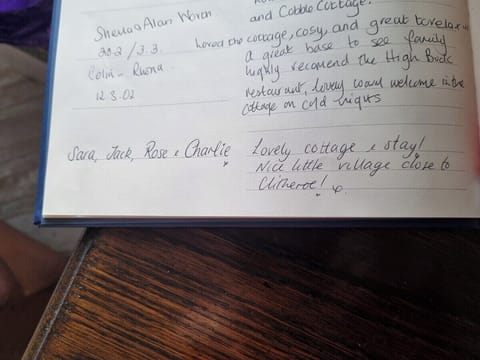 and Cobble Cottage.
Sheila & Alan
3.3.
Loved the cottage, cosy, and great to relax in
a great base to see family
Colin - Rhona
highly recomend the High Buck
12.3.02
restaurant, lovely coal welcome in the
cottage on cold nights
Sara, Jack, Rose & Charlie x
Lovely cottage & stay!
Nice little village close to
Clitheroe! x